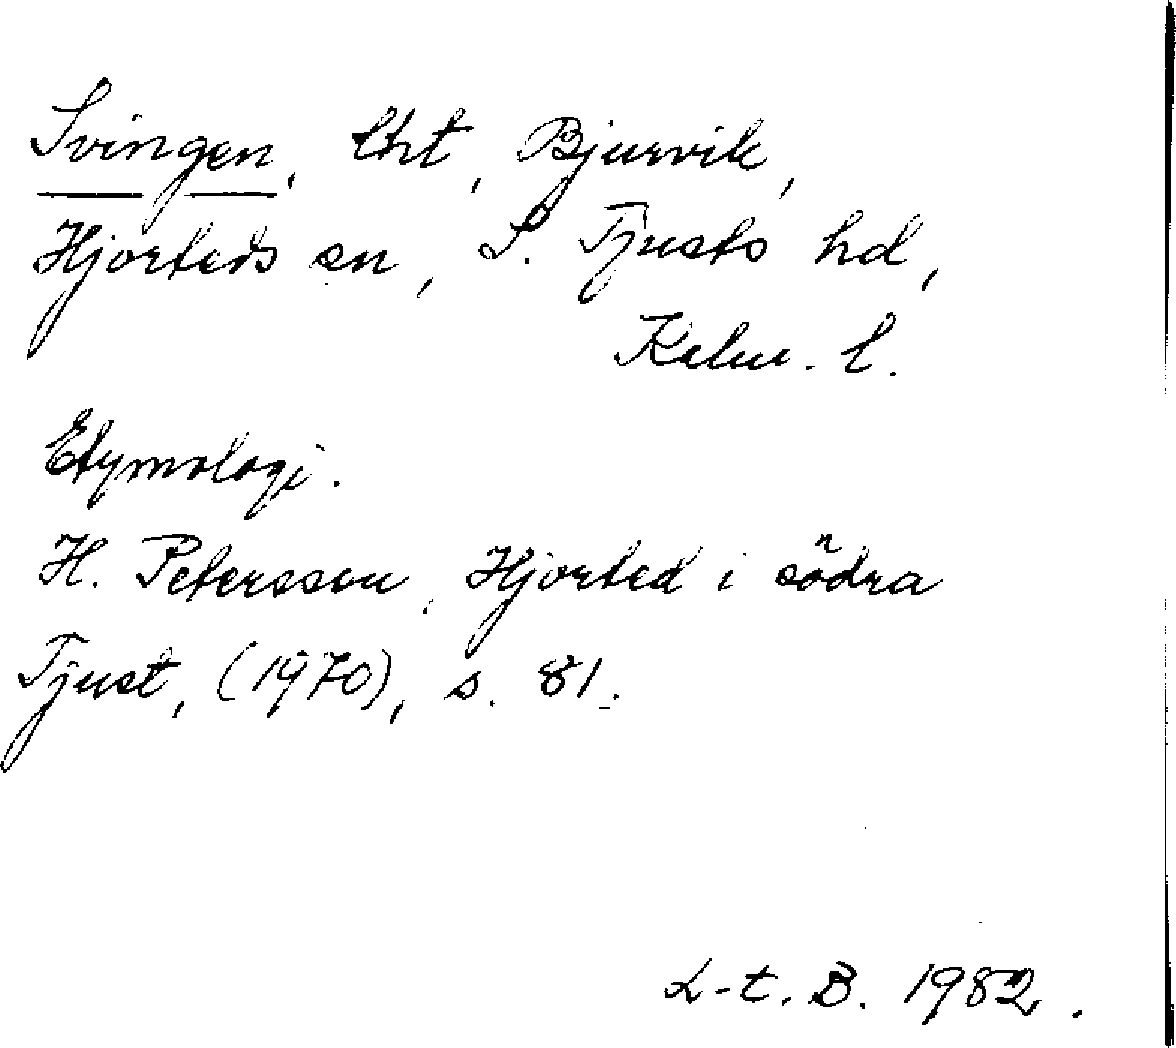 Svingen, lht, Bjurvik,
Hjorteds sn, S. Tjusts hd,
Kalm. l.
Etymologi.
H. Petersson, Hjorted i södra
Tjust, (1970), s. 81.
L-t. B. 1982.